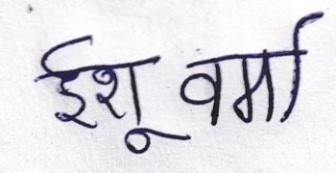 ईशू वर्मा